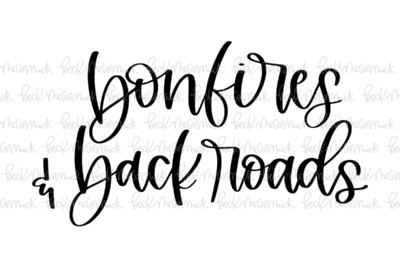 bonfires
& back roads